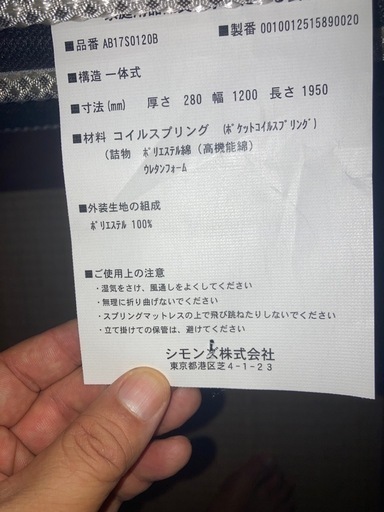 ■品番 AB17S0120B ■製番 0010012515890020
■構造 一体式
■寸法(mm) 厚さ 280 幅 1200 長さ 1950
■材料 コイルスプリング (ポケットコイルスプリング)
(詰物 ポリエステル綿(高機能綿)
ウレタンフォーム
■外装生地の組成
ポリエステル 100%
■ご使用上の注意
・湿気をさけ、風通しをよくしてください
・無理に折り曲げないでください
・スプリングマットレスの上で飛び跳ねたりしないでください
・立て掛けての保管は、避けてください
シモンズ株式会社
東京都港区芝4-1-23